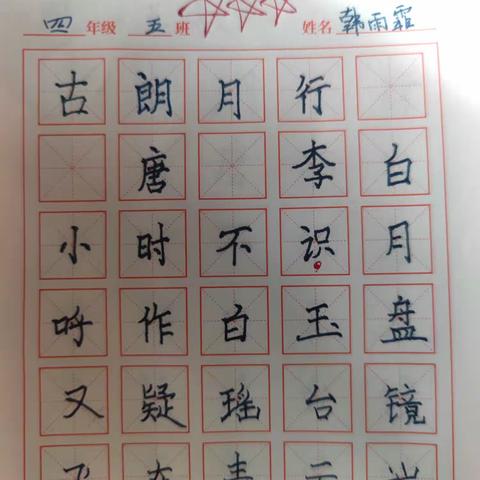 四年级 五班 姓名 韩雨霜
古朗月行
唐 李白
小时不识月
呼作白玉盘
又疑瑶台镜
飞在青云